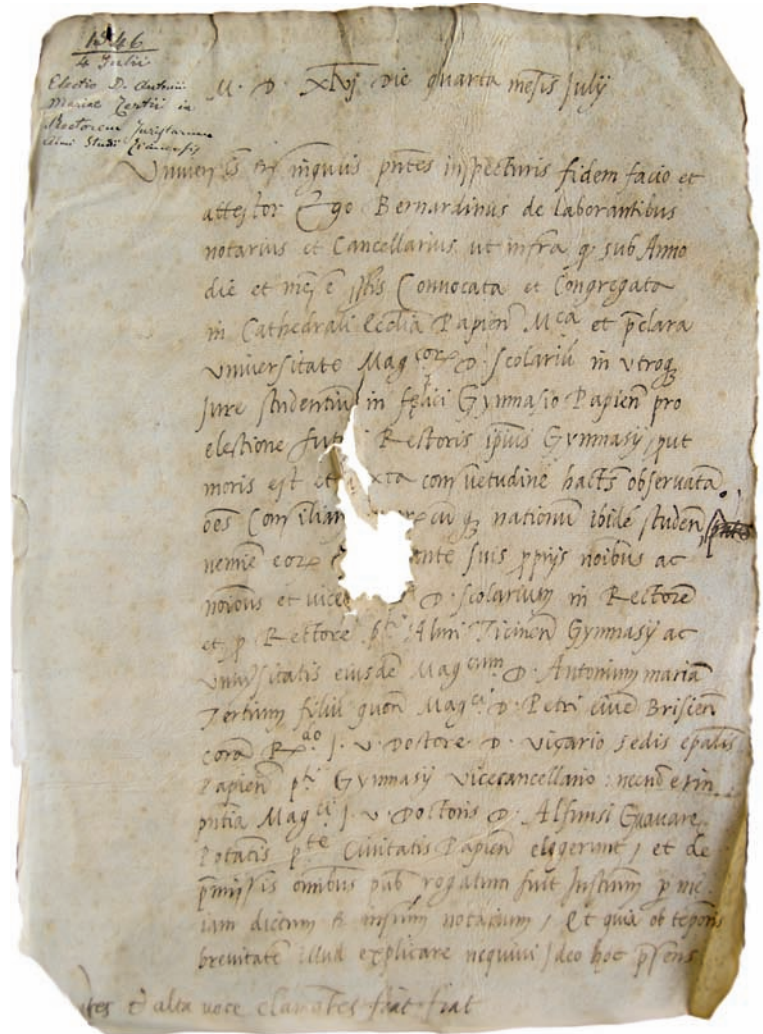 1546
4 Julii
Electio D. Antonii
Mariae Tertii in
Rectorem Juristarum
Almi Studi Ticinensis
M. D. xlvj die quarta mẽsis July
et singulis pñtes inspecturis fidem facio et
attestor Ego Bernardinus de laborantibus
notarius et Cancellarius ut infra q sub Anno
die et Convocata et Congregata
in Cathedrali Papieñ M.ca et p̃clara
universitate Mag.cor D. scolariũ in utroq
Jure studentiũ in felici Gymnasio Papieñ pro
electione Rectoris ipsius Gymnasy, put
moris est et consuetudine hactẽs observata
oẽs nationũ ibidẽ studeñ
suis ppriis noibus ac
noibus et D. scolarium in Rectorẽ
et p Rectore Almi Ticineñ Gymnasy ac
eiusdẽ Mag.cum D. Antonium mariã
Tertium filiũ quoñ Mag.ci D. Petri civẽ Brisieñ
corã R.do J. v. Doctore D. vicario sedis ep̃alis
Papieñ p.ti Gymnasy vicecancellario: necnõ et in
pñtia Mag.ci J. v. Doctoris D. Alfunsi
Potatis p.te Civitatis Papieñ elegerunt, et de
p̃missis omibus pub rogatum fuit p me
iam dictum et notarium, Et quia ob tẽporis
brevitatẽ illud explicare nequivi Ideo hoc p̃sens
alta voce clamãtes fiat fiat